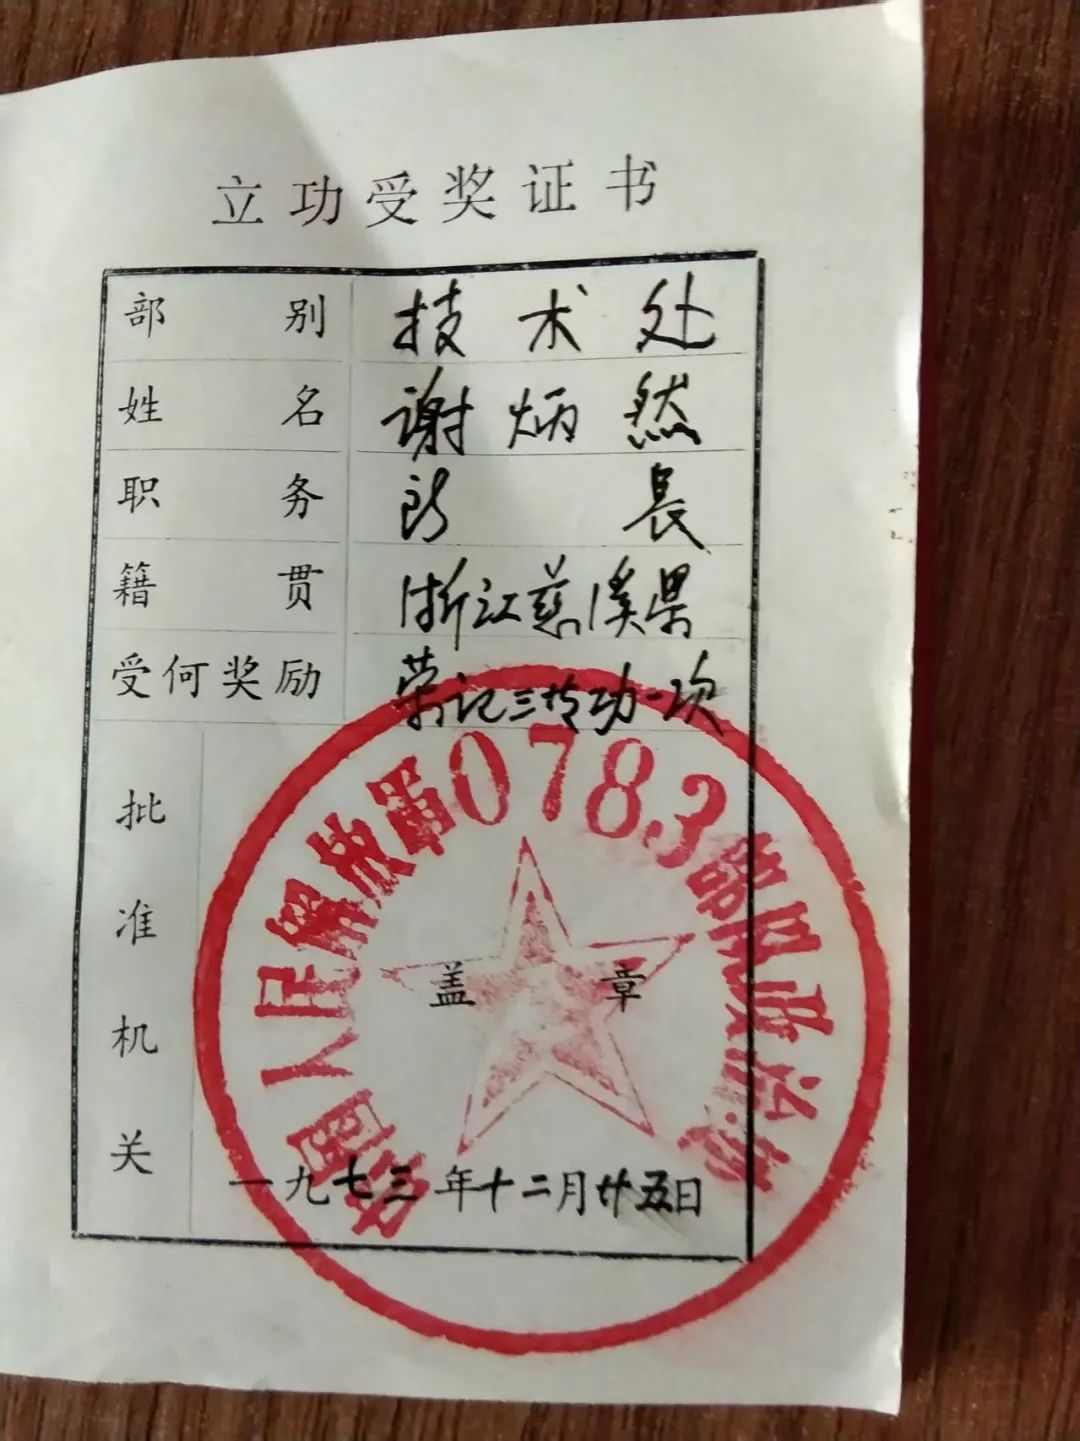 立功受奖证书
部别 技术处
姓名 谢炳然
职务 所長
籍贯 浙江慈溪县
受何奖励 荣记三等功一次
批准机关
中国人民解放军0783部队政治部
盖章
一九七三年十二月廿五日